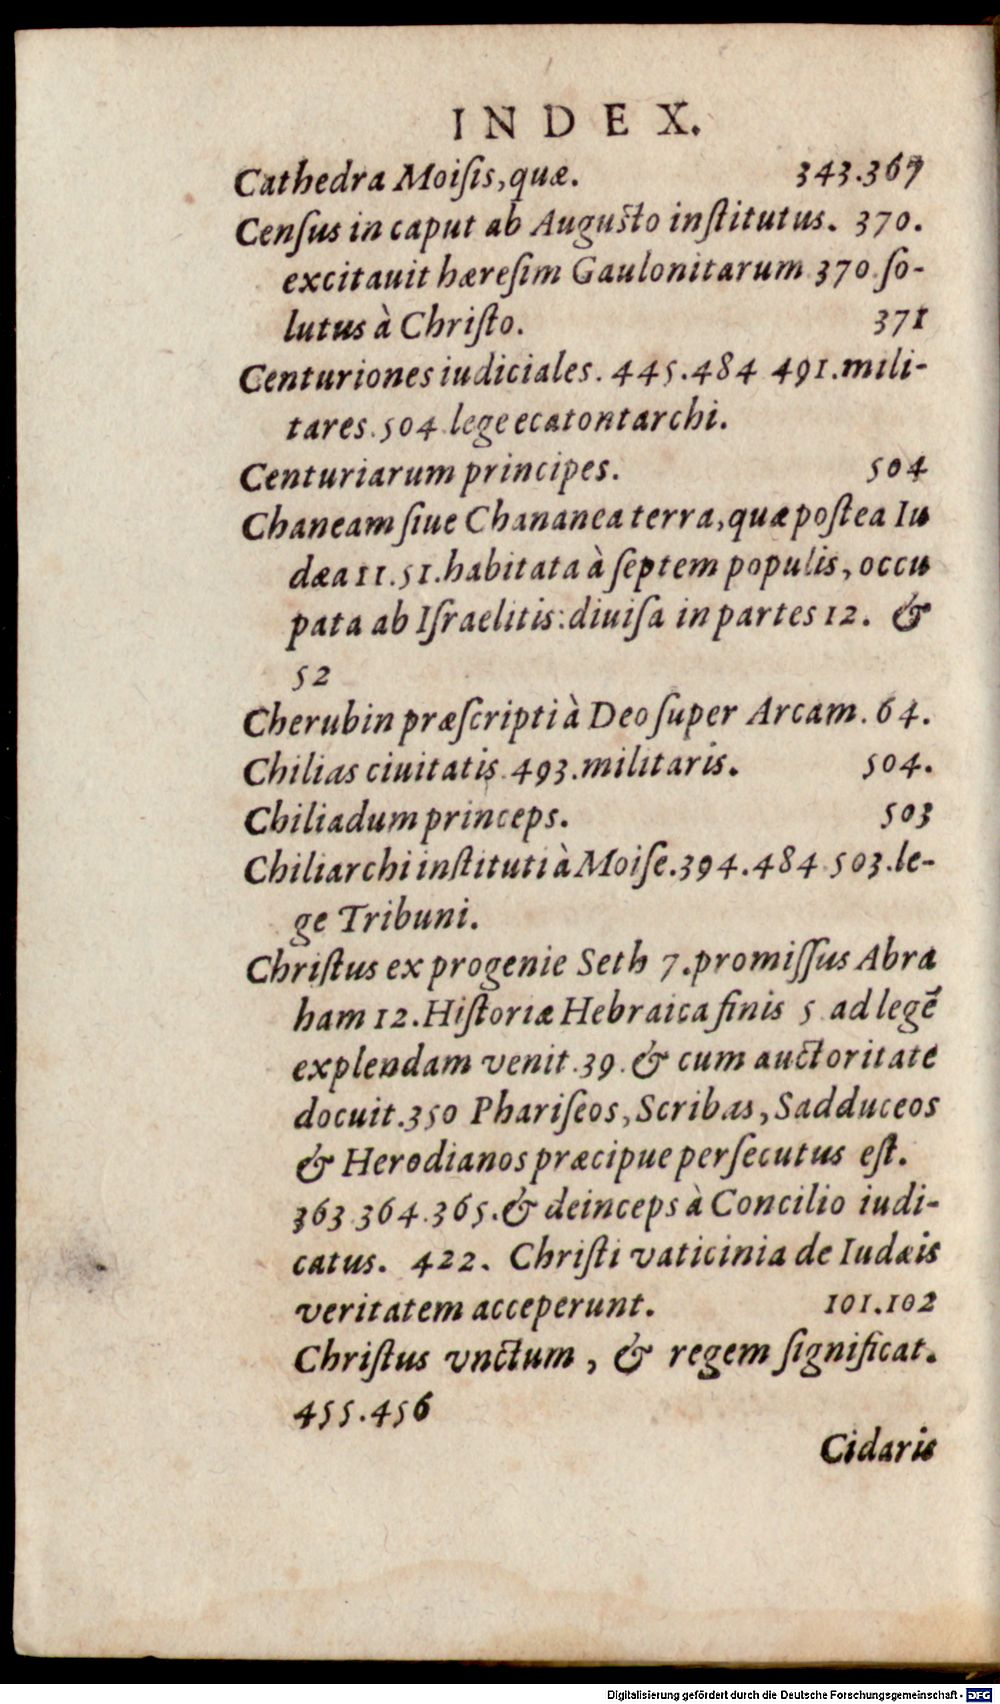 INDEX.
Cathedra Moiſis, quæ. 343.367
Cenſus in caput ab Auguſto inſtitutus. 370.
excitauit hæreſim Gaulonitarum 370 ſo-
lutus à Chriſto. 371
Centuriones iudiciales. 445.484 491.mili-
tares.504.lege ecatontarchi.
Centuriarum principes. 504
Chaneam ſiue Chananea terra, quæ poſtea Iu
dæa 11.51.habitata à ſeptem populis, occu
pata ab Iſraelitis: diuiſa in partes 12. &
52
Cherubin præſcripti à Deo ſuper Arcam. 64.
Chilias ciuitatis 493.militaris. 504.
Chiliadum princeps. 503
Chiliarchi inſtituti à Moiſe.394.484 503.le-
ge Tribuni.
Chriſtus ex progenie Seth 7.promiſſus Abra
ham 12.Hiſtoriæ Hebraica finis 5 ad legē
explendam venit.39.& cum auctoritate
docuit.350 Phariſeos, Scribas, Sadduceos
& Herodianos præcipue perſecutus eſt.
363.364.365.& deinceps à Concilio iudi-
catus. 422. Chriſti vaticinia de Iudæis
veritatem acceperunt. 101.102
Chriſtus vnctum, & regem ſignificat.
455.456
Cidaris
Digitalisierung gefördert durch die Deutsche Forschungsgemeinschaft - DFG